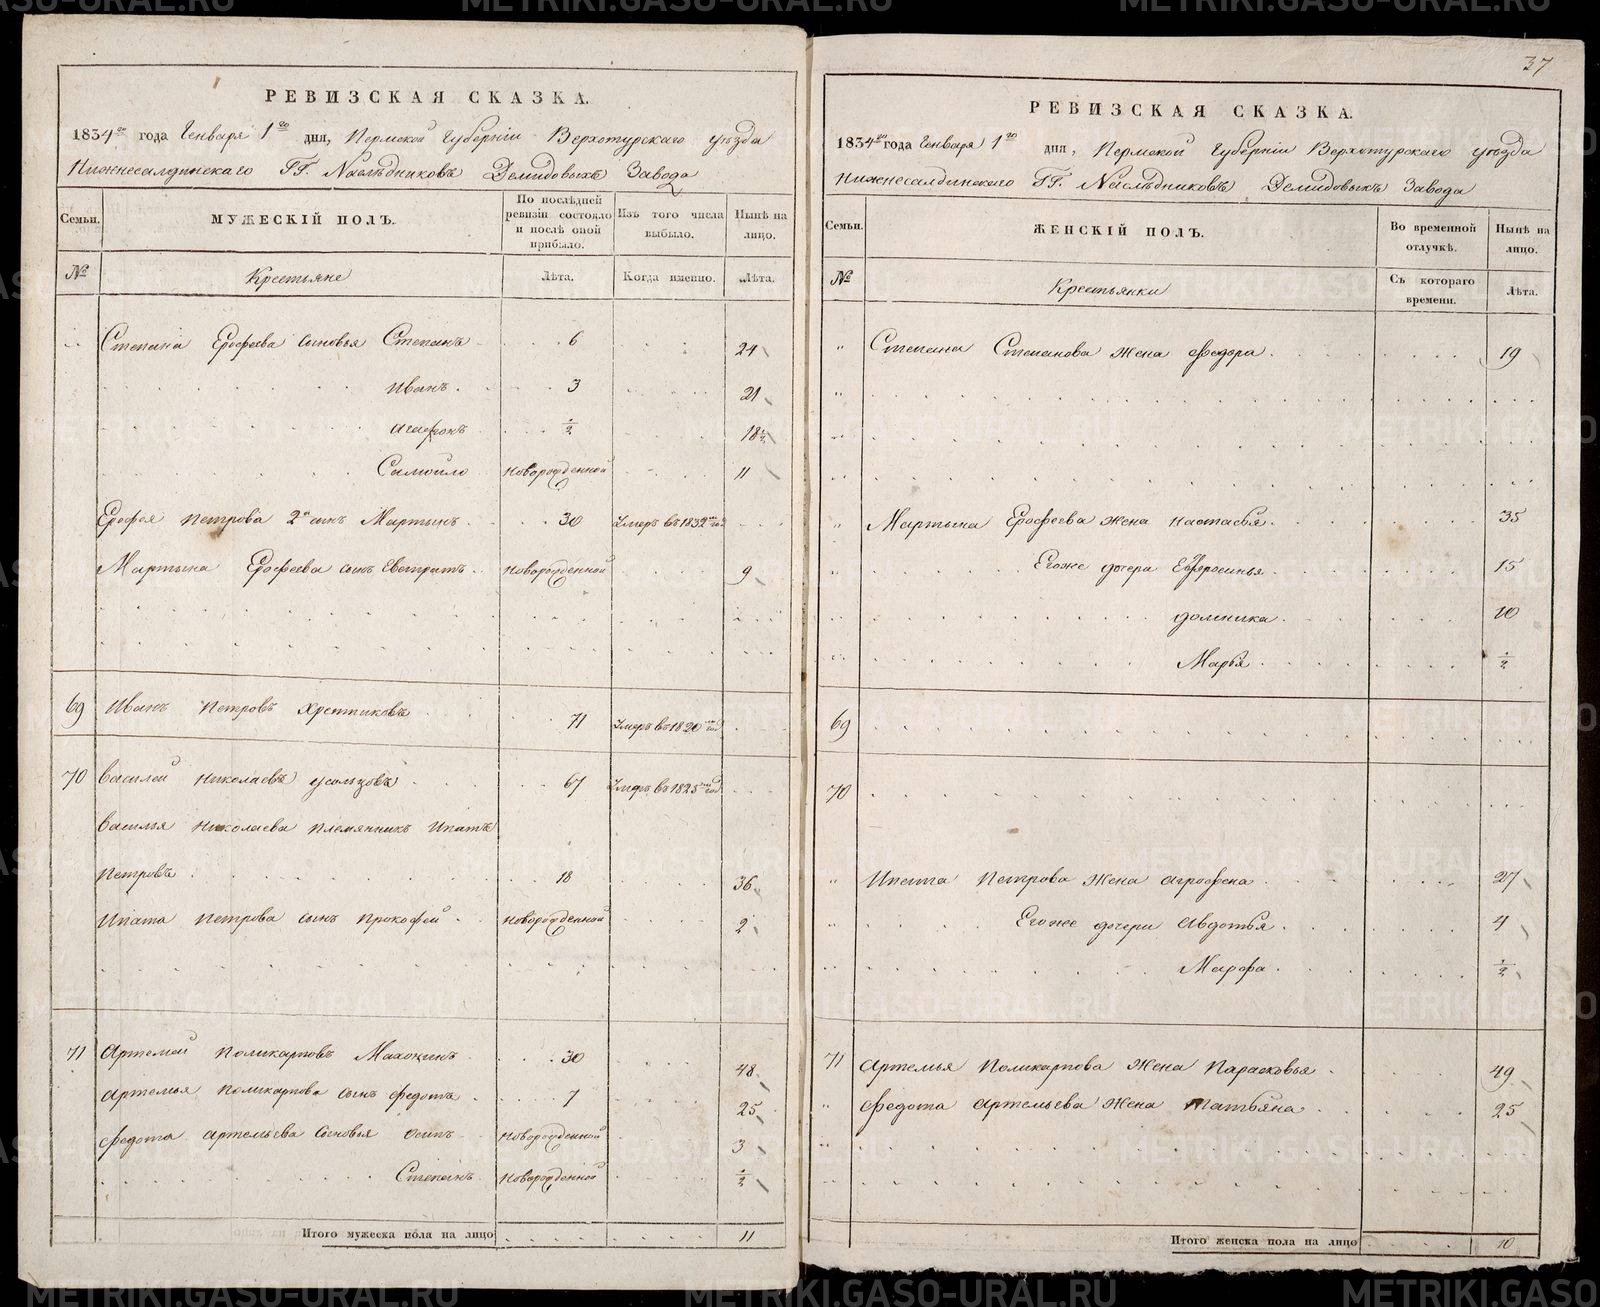 РЕВИЗСКАЯ СКАЗКА.
1834го года Генваря 1го дня, Пермской Губерніи Верхотурскаго уѣзда
Нижнесалдинскаго ГГ. Наслѣдниковъ Демидовыхъ Завода
Семьи. МУЖЕСКІЙ ПОЛЪ. По послѣдней ревизіи состояло и послѣ оной прибыло. Изъ того числа выбыло. Нынѣ на лицо.
№ Крестьяне Лѣта. Когда именно. Лѣта.
Степана Ерофеева сыновья Степанъ 6 24
Иванъ 3 21
Агафонъ ½ 18½
Самойло новорожденной 11
Ерофея Петрова 2й сынъ Мартынъ 30 Умеръ въ 1832 году
Мартына Ерофеева сынъ Евстратъ новорожденной 9
69 Иванъ Петровъ 71 Умеръ въ 1820 году
70 Василей Николаевъ Усольцовъ 67 Умеръ въ 1825 году
Василья Николаева племянникъ Ипатъ
Петровъ 18 36
Ипата Петрова сынъ Прокофей новорожденной 2
71 Артемей Поликарповъ Махонинъ 30 48
Артемья Поликарпова сынъ Федотъ 7 25
Федота Артемьева сыновья Осипъ новорожденной 3
Степанъ новорожденной ½
Итого мужеска пола на лицо 11
37
РЕВИЗСКАЯ СКАЗКА.
1834го года Генваря 1го дня, Пермской Губерніи Верхотурскаго уѣзда
Нижнесалдинскаго ГГ. Наслѣдниковъ Демидовыхъ Завода
Семьи. ЖЕНСКІЙ ПОЛЪ. Во временной отлучкѣ. Нынѣ на лицо.
№ Крестьянки Съ котораго времени. Лѣта.
Степана Степанова жена Федора 19
Мартына Ерофеева жена Настасья 35
Егоже дочери Ефросинья 15
Домника 10
Марья ½
69
70
Ипата Петрова жена Агрофена 27
Егоже дочери Авдотья 4
Марфа ½
71 Артемья Поликарпова жена Парасковья 49
Федота Артемьева жена Татьяна 25
Итого женска пола на лицо 10
METRIKI.GASO-URAL.RU